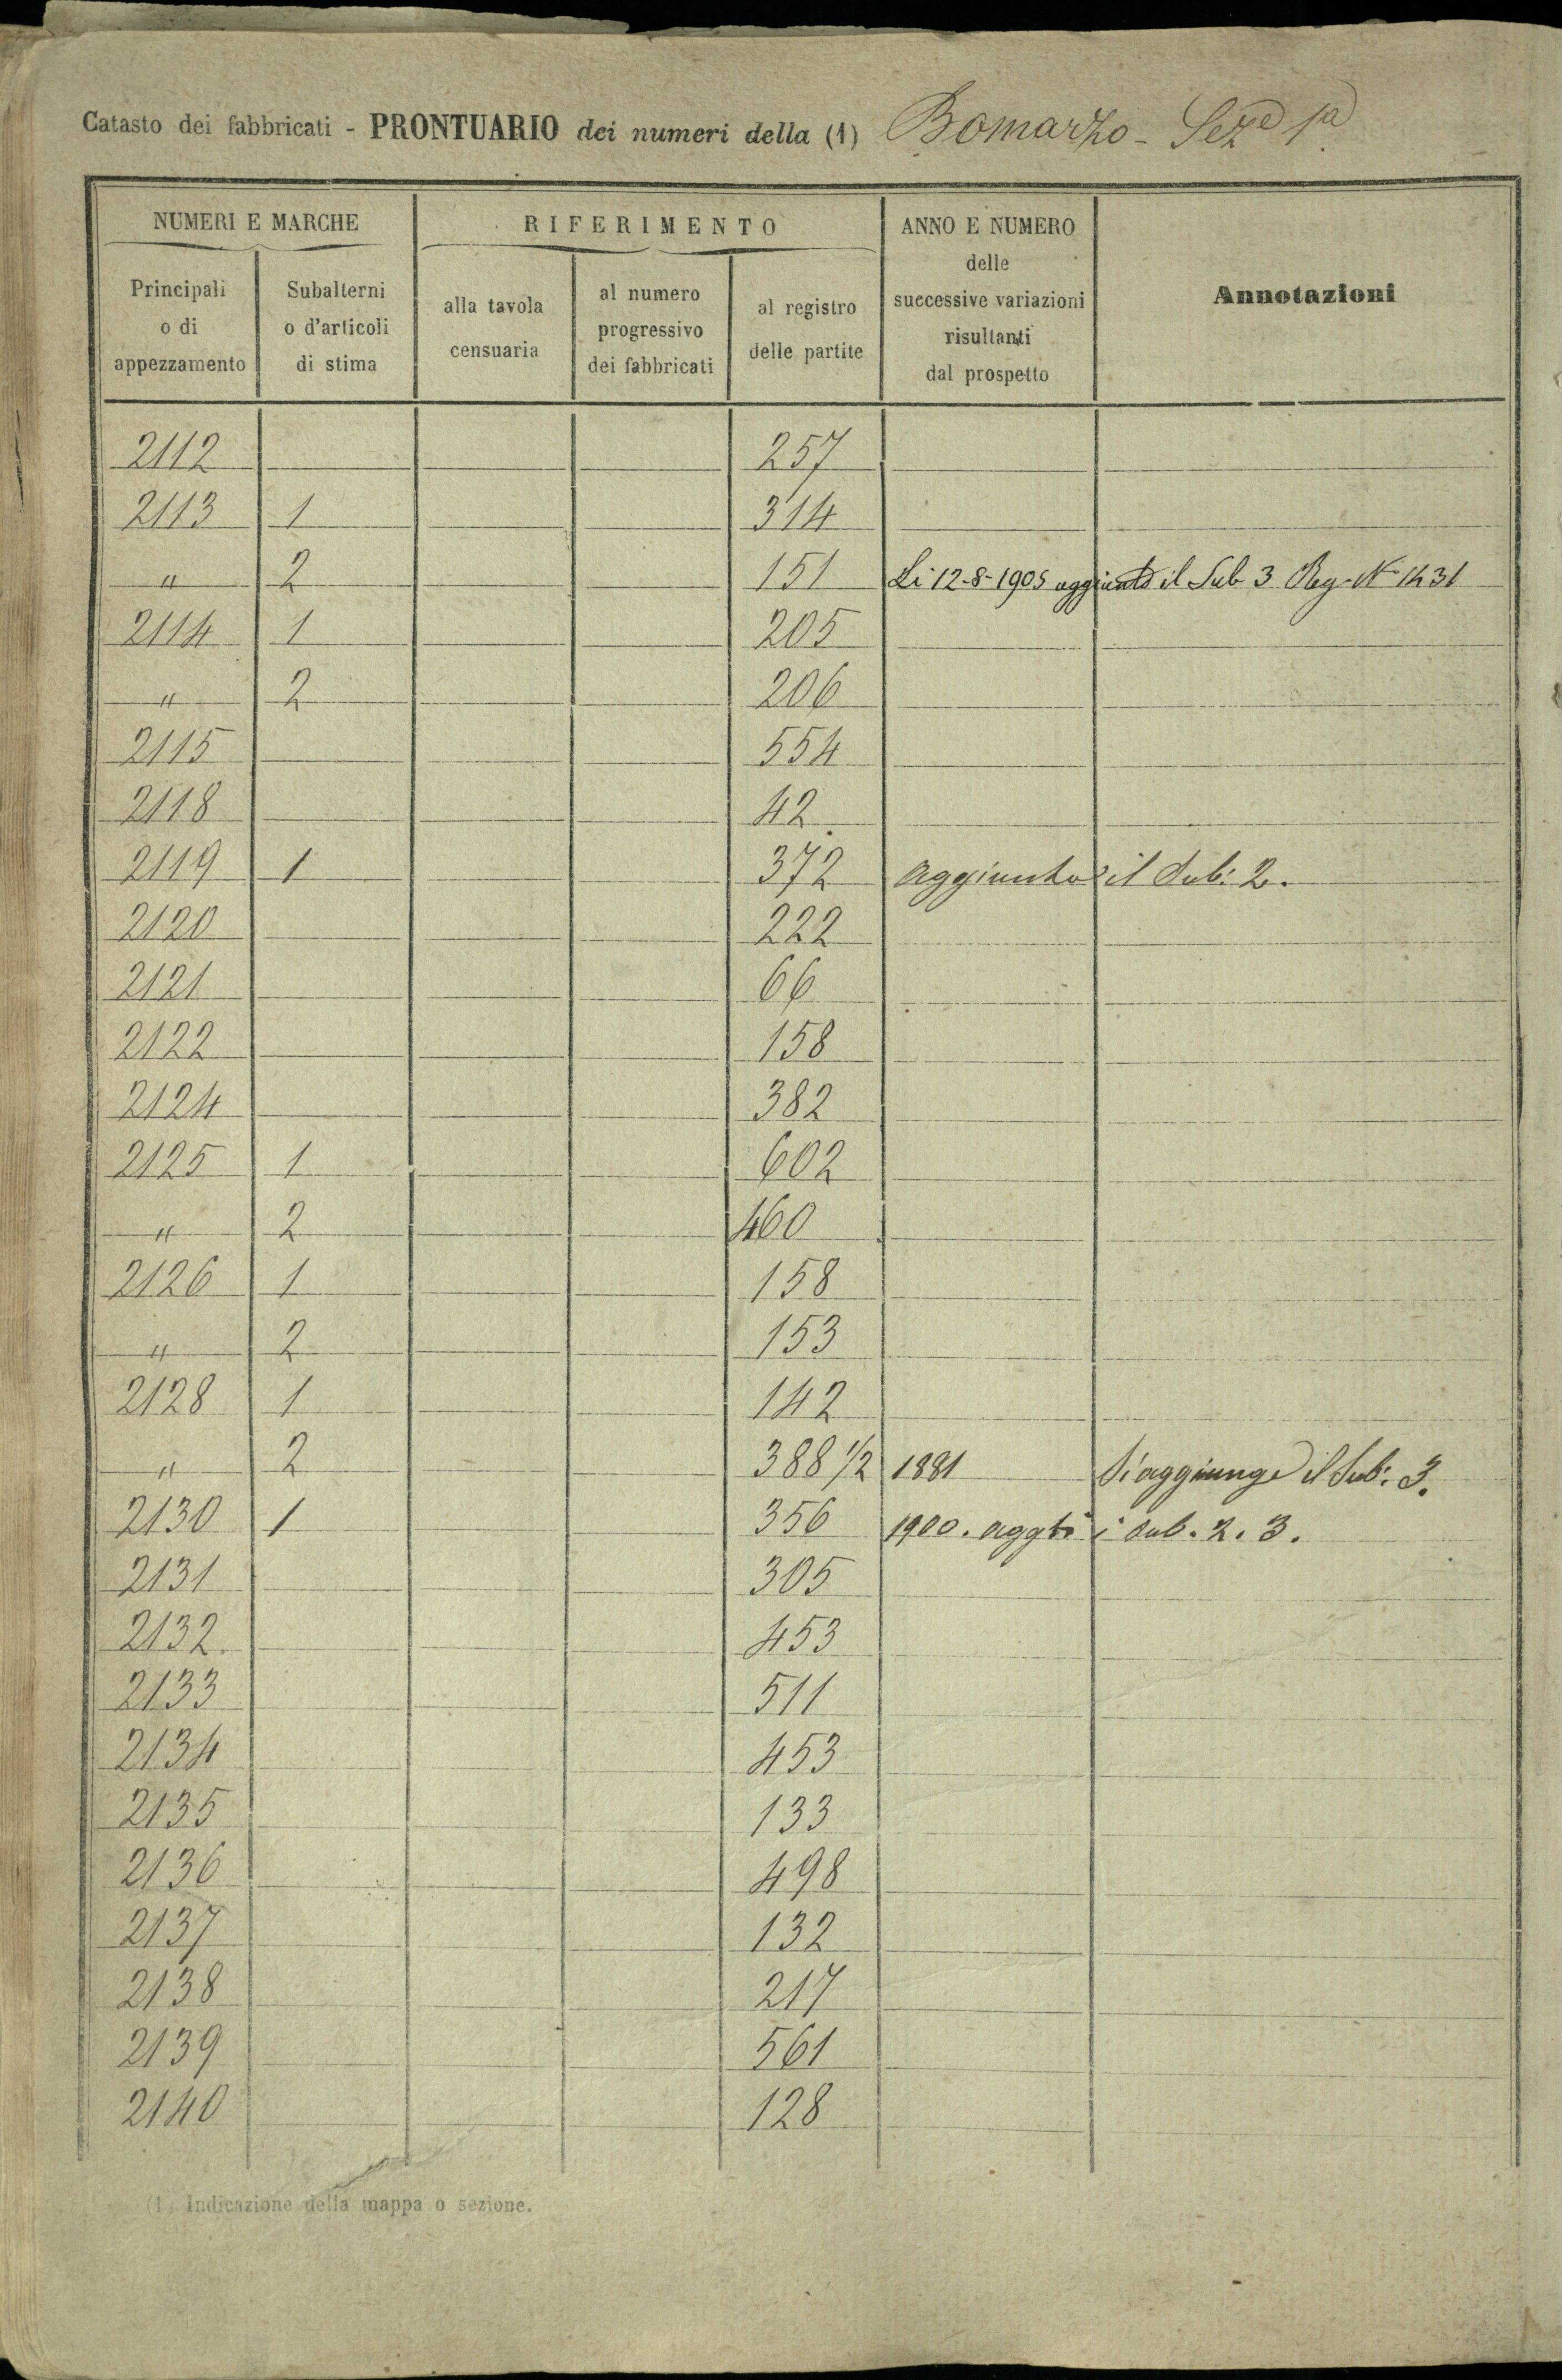 Catasto dei fabbricati - PRONTUARIO dei numeri della (1) Bomarzo - Seze 1a
NUMERI E MARCHE
RIFERIMENTO
ANNO E NUMERO
delle
successive variazioni
risultanti
dal prospetto
Annotazioni
Principali
o di
appezzamento
Subalterni
o d'articoli
di stima
alla tavola
censuaria
al numero
progressivo
dei fabbricati
al registro
delle partite
2112 257
2113 1 314
" 2 151 Li 12-8-1905 aggiunto il Sub 3 Reg. N. 1431
2114 1 205
" 2 206
2115 554
2118 42
2119 1 372 aggiunto il Sub: 2.
2120 222
2121 66
2122 158
2124 382
2125 1 602
" 2 460
2126 1 158
" 2 153
2128 1 142
" 2 388 1/2 1881 Si aggiunge il Sub: 3.
2130 1 356 1900. aggti i sub. 2. 3.
2131 305
2132 453
2133 511
2134 453
2135 133
2136 498
2137 132
2138 217
2139 561
2140 128
(1) Indicazione della mappa o sezione.